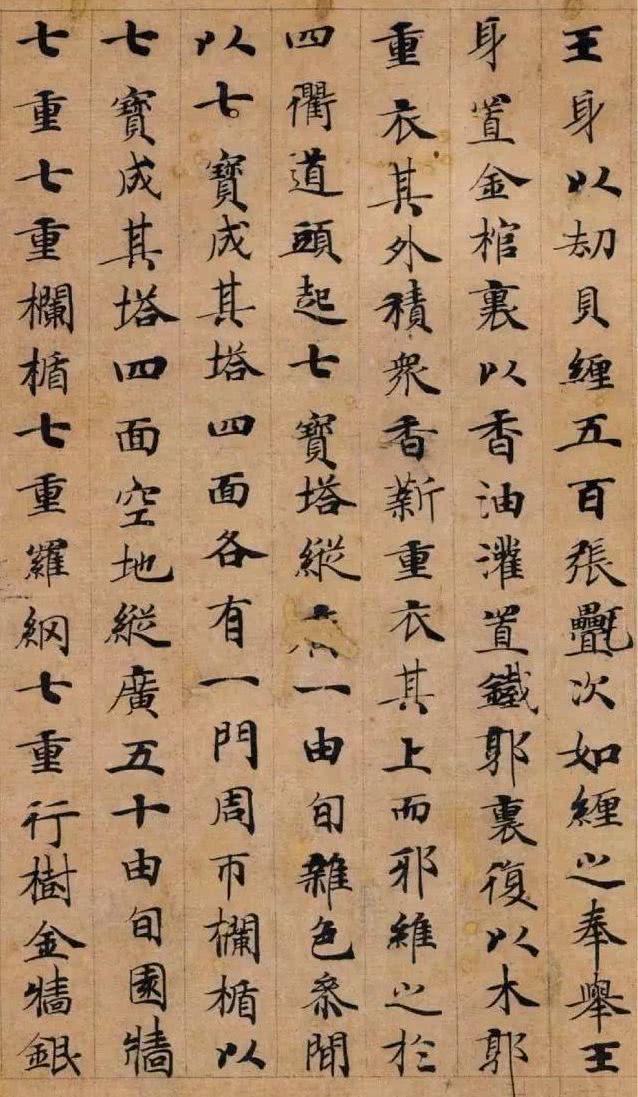 王身以劫貝纏五百張氎次如纏之奉舉王
身置金棺裏以香油灌置鐵郭裏復以木郭
重衣其外積衆香薪重衣其上而耶維之於
四衢道頭起七寶塔縱一由旬雜色叅間
以七寶成其塔四面各有一門周帀欄楯以
七寶成其塔四面空地縱廣五十由旬園牆
七重七重欄楯七重羅網七重行樹金牆銀